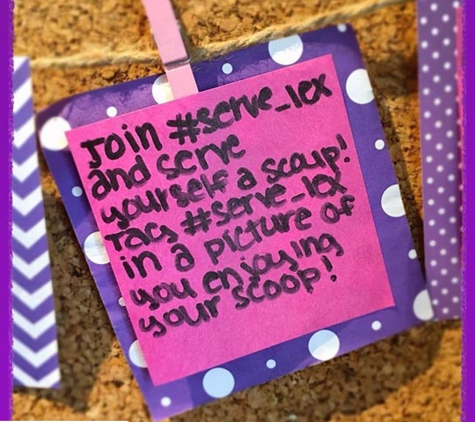 Join #serve_lex
and serve
yourself a scoop!
Tag #serve_lex
in a picture of
you enjoying
your scoop!